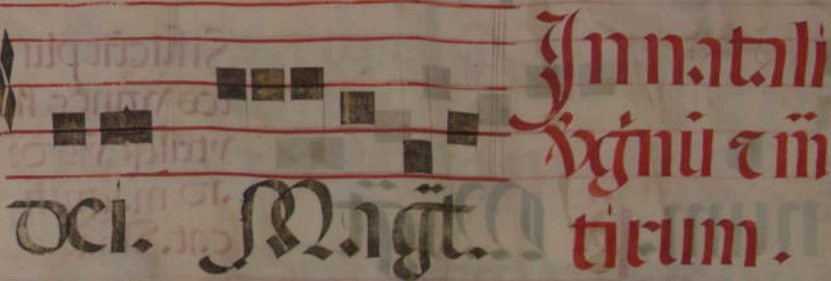 dei. Magt.
In natali
v̾gnū ⁊ m̄
tirum.